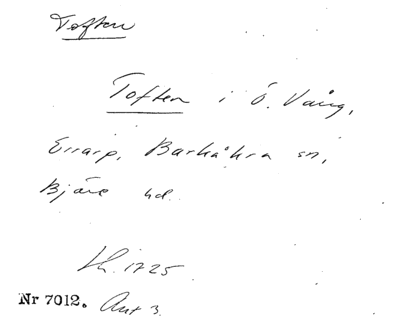 Toften
Toften i Ö. Vång,
Errarp, Barkåkra sn,
Bjäre hd.
Lh. 1725
Nr 7012. Ant 3.